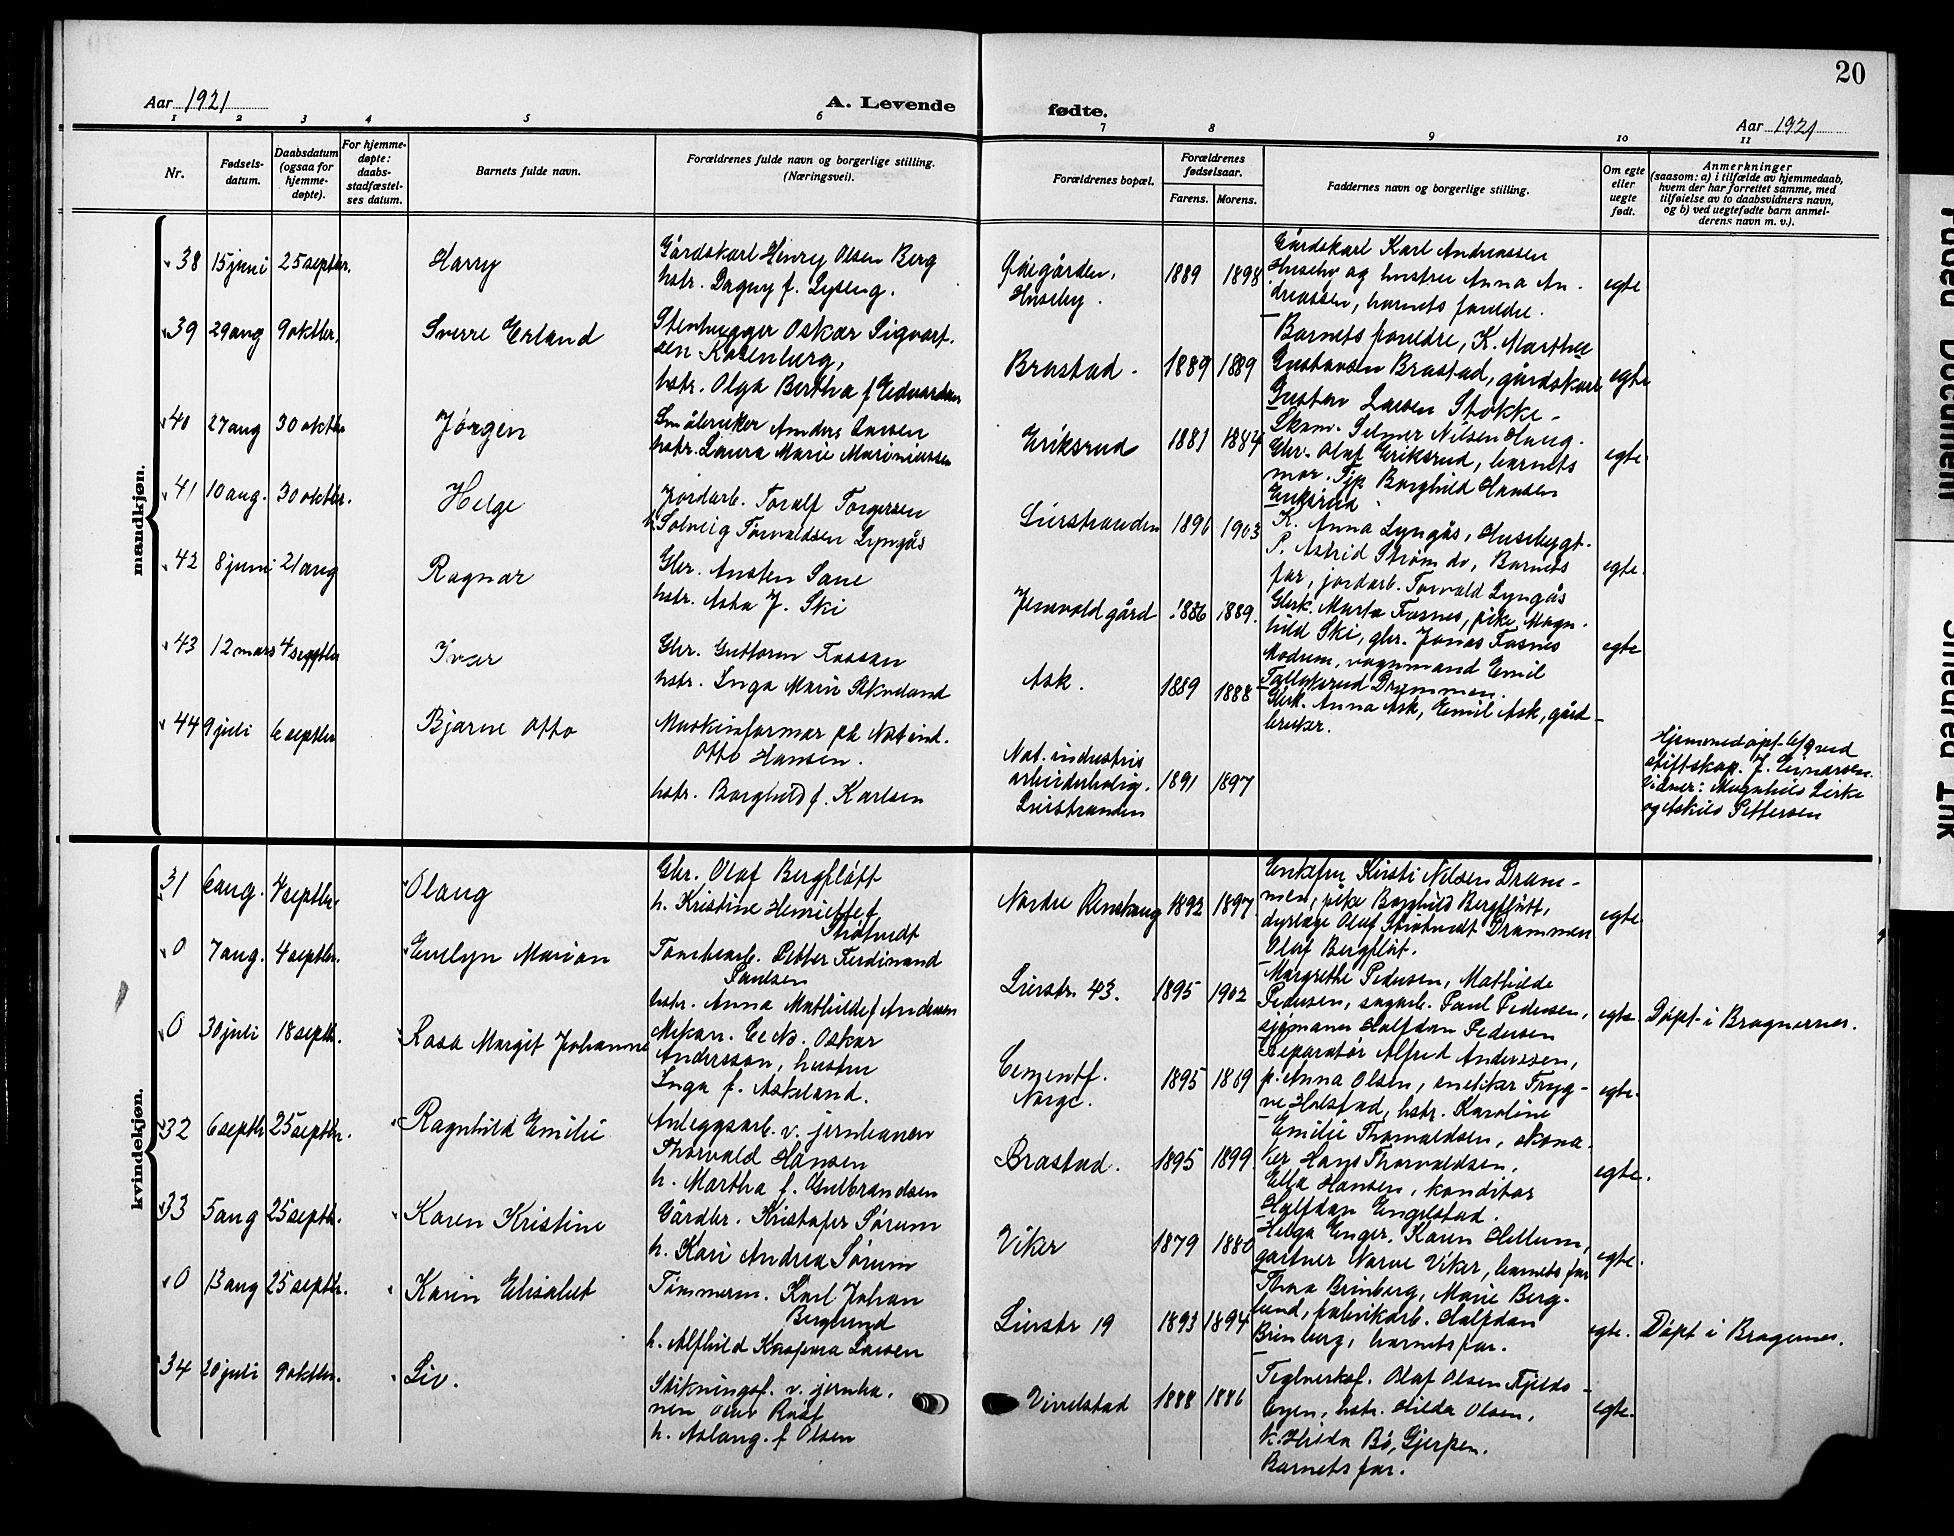 20
Aar 1921
A. Levende
fødte.
Aar 1921
1 2 3 4 5 6 7 8 9 10 11
Nr.
Fødsels-
datum.
Daabsdatum
(ogsaa for
hjemme-
døpte).
For hjemme-
døpte:
daabs-
stadfæstel-
ses datum.
Barnets fulde navn.
Forældrenes fulde navn og borgerlige stilling.
(Næringsvei).
Forældrenes bopæl.
Forældrenes
fødselsaar.
Farens. Morens.
Faddernes navn og borgerlige stilling.
Om egte
eller
uegte
født.
Anmerkninger
(saasom: a) i tilfælde av hjemmedaab,
hvem der har forrettet samme, med
tilføielse av to daabsvidners navn,
og b) ved uegtefødte barn anmel-
derens navn m. v.).
mandkjøn.
38 15 juni 25 septbr. Harry
Gårdskarl Henry Olsen Berg
hstr. Dagny f. Lyseng.
Huseby.
1889 1898
Gårdskarl Karl Andreassen
Huseby og hustru Anna An-
dreassen, barnets foreldre.
egte
39 29 aug 9 oktbr. Sverre Erland
Stenhugger Oskar Sigvart-
sen Rosenberg,
hstr. Olga Bertha f. Edvardsen
Brastad.
1889 1889
Barnets foreldre, K. Marthea
Gustavsen Brastad, gårdskarl
Gustav Larsen Stokke
egte
40 27 aug 30 oktbr Jørgen
Småbruker Anders Larsen
hstr. Laura Marie Mariniussen
Eriksrud
1881 1884
Skom. Selmer Nilsen Haug.
Gbr. Olaf Eriksrud, barnets
mor. Tjp. Borghild Hansen
Eriksrud
egte
41 10 aug. 30 oktbr. Helge
Jordarb. Toralf Torgersen
h. Solveig Torvaldsen Lyngås
Lierstranden 1896 1903
K. Anna Lyngås, Husebygt.
P. Astrid Strøm do, Barnets
far, jordarb. Torvald Lyngås
egte.
42 8 juni 21 aug Ragnar
Gbr. Ansten Sane
hstr. Asta J. Ski
gård 1886 1889.
Gbrk. Marta Fosnes, pike Magn-
hild Ski, gbr. Jonas Fosnes
Modum, vognmand Emil
Drammen.
egte
43 12 mars 4 septbr Ivar
Gbr. Guttorm
hstr. Inga Marie
Ask.
1889 1888
Gbrk. Anna Ask, Emil Ask, gård-
bruker.
44 9 juli 6 septbr Bjarne Otto
Maskinformar på Nat. ind.
Otto Hansen.
hstr. Borghild f. Karlsen
Nat. industris
arbeiderbolig.
Lierstranden
1891 1897
Hjemmedøpt 6/9 ved
stiftskap. J. Einarsen.
Vidner: Magnhild Lirke
og Askild Pettersen
kvindekjøn.
31 6 aug. 4 septbr. Olaug
Gbr. Olaf Bergfløtt
h. Kristine Henriette f.
Strøtvedt
Nordre Renskaug 1892 1897
Enkefru Kirsti Nilsen Dram-
men, pike Borghild Bergfløtt,
dyrlæge Olaf Strøtvedt Drammen
Olaf Bergfløt.
egte
0 7 aug. 4 septbr. Evelyn Marion
Tomtearb. Petter Ferdinand
Paulsen
hstr. Anna Mathilde f. Andersen
Lierstr. 43. 1895 1902
Margrethe Pedersen, Mathilde
Pedersen, sagarb. Paul Pedersen,
sjømann Halfdan Pedersen
egte Døpt i Bragernes.
0 30 juli 18 septbr. Rosa Margit Johanne
Mekan. Oskar
Andersson, hustru
Inga f. Askeland.
Cementf.
Norge.
1895 1889
Reparatør Alfred Anderssen,
p. Anna Olsen, snekker Tryg-
ve Holstad, hstr. Karoline
egte.
32 6 septbr 25 septbr. Ragnhild Emilie
Anleggsarb. v. jernbanen
Thorvald Hansen
h. Martha f. Gulbrandsen
Brastad. 1895 1899
Emilie Thorvaldsen, skoma-
ker Hans Thorvaldsen,
Ella Hansen, konditor
Halfdan Engelstad.
egte.
33 5 aug 25 septbr. Karen Kristine
Gårdbr. Kristofer Sørum
h. Kari Andrea Sørum
Viker 1879 1880
Helga Enger, Karen Hellum,
gartner Narve Viker, barnets far
egte.
0 13 aug 25 septbr. Karin Elisabet
Tømmerm. Karl Johan
Berglund
h. Alfhild Kaspara Larsen
Lierstr 19 1893 1894
Thora Brinberg, Marie Berg-
lund, fabrikarb. Halfdan
Brinberg, barnets far.
egte. Døpt i Bragernes.
34 20 juli 9 oktbr. Liv.
Stikningsf. v. jernba-
nen Olav Røst
h. Aslaug f. Olsen
Virvelstad 1888 1886
Teglverksf. Olaf Olsen Fjelds-
byen, hstr. Hilda Olsen,
K. Hilda Bø, Gjerpen.
Barnets far.
egte.
Faded Document
Smeared Ink